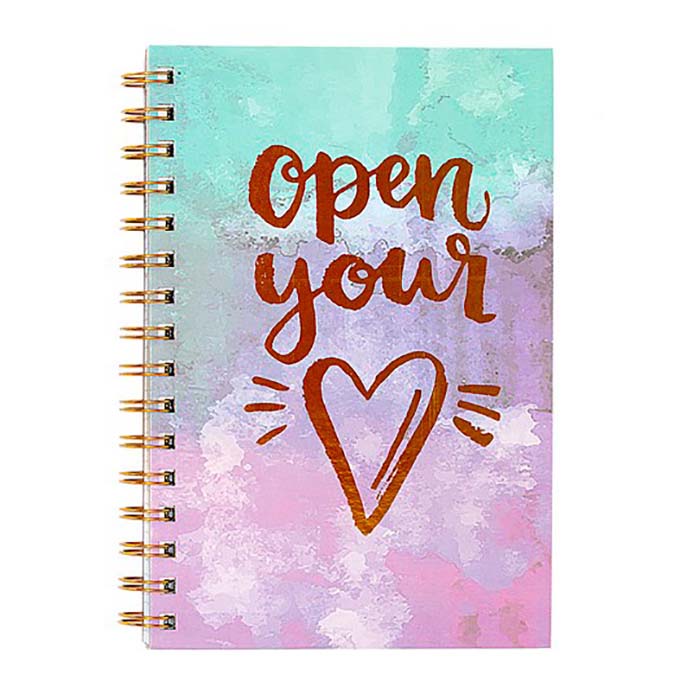 open
your